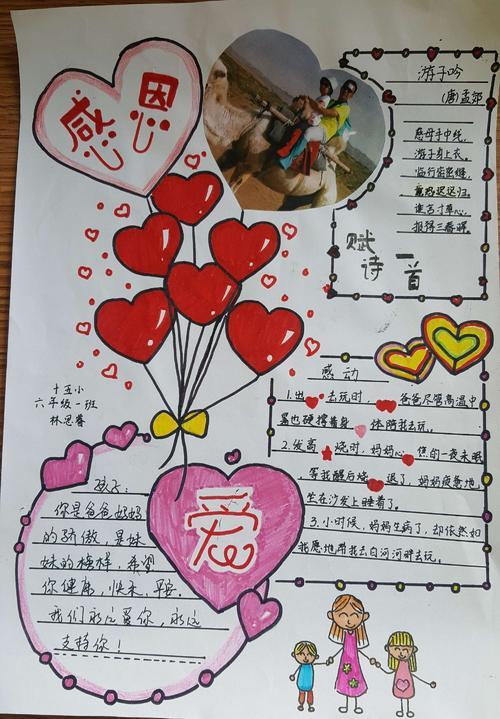 感恩
游子吟
(唐)孟郊
慈母手中线,
游子身上衣。
临行密密缝,
意恐迟迟归。
谁言寸草心,
报得三春晖。
赋诗一首
十五小
六年级一班
林思睿
感动
1.出去玩时,爸爸尽管高温中
暑也硬撑着身体陪我去玩。
2.发高烧时,妈妈心焦的一夜未眠
等我醒后烧退了,妈妈疲惫地
坐在沙发上睡着了。
3.小时候,妈妈生病了,却依然如
我愿地带我去白河河畔去玩。
爱
孩子:
你是爸爸妈妈
的骄傲,是妹
妹的榜样,希望
你健康、快乐、平安.
我们永远爱你,永远
支持你!